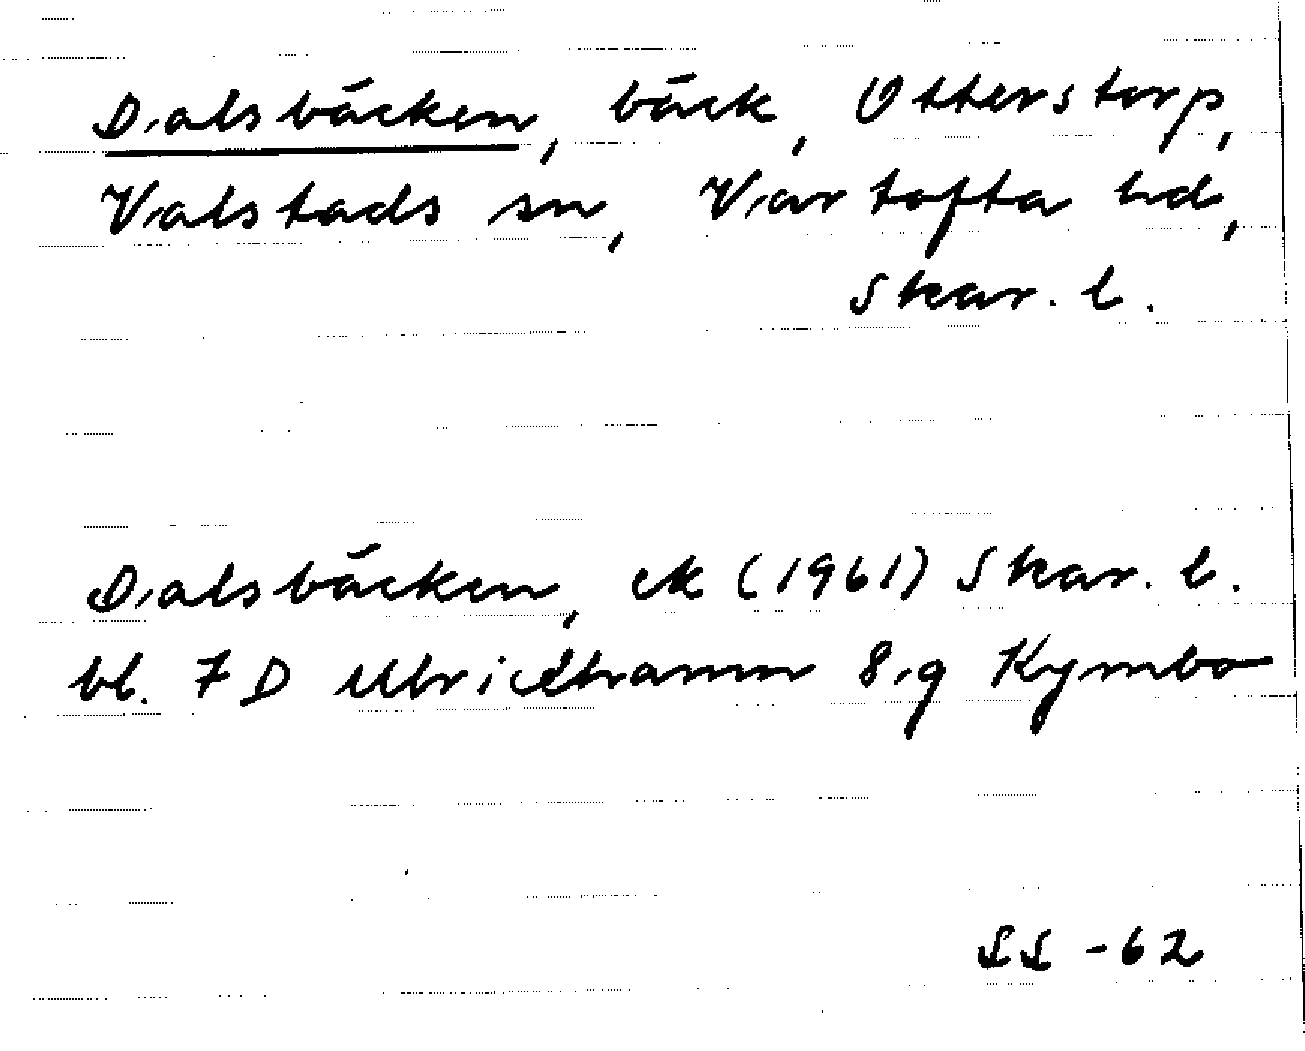 Dalsbäcken, bäck, Otterstorp,
Valstads sn, Vartofta hd,
Skar. l.
Dalsbäcken, ek (1961) Skar. l.
bl. 7 D Ulricehamn 8,9 Kymbo
LL -62